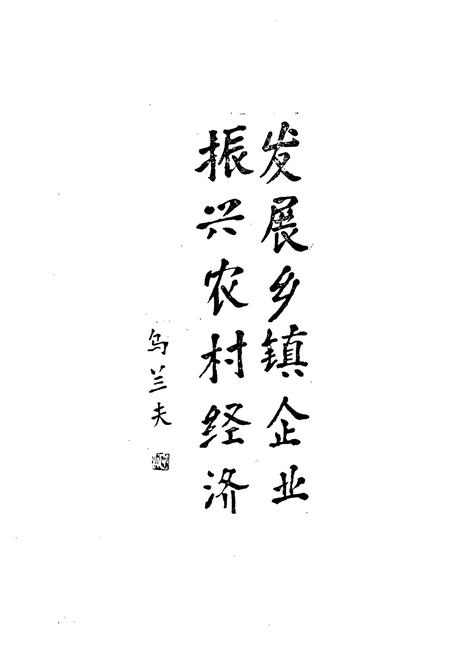 发展乡镇企业
振兴农村经济
乌兰夫